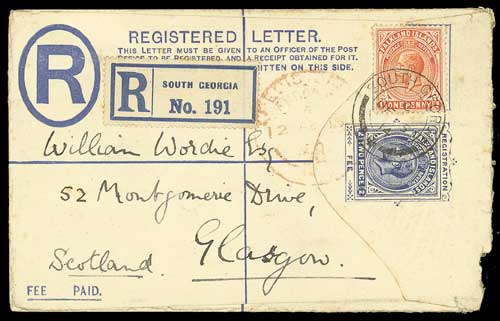 REGISTERED LETTER.
THIS LETTER MUST BE GIVEN TO AN OFFICER OF THE POST
OFFICE TO BE REGISTERED, AND A RECEIPT OBTAINED FOR IT.
WRITTEN ON THIS SIDE.
R
R
SOUTH GEORGIA
No. 191
FALKLAND ISLANDS
ONE PENNY
SOUTH
REGISTRATION
FALKLAND ISLANDS
TWO PENCE
FEE
William Wordie Esq
52 Montgomerie Drive,
Glasgow.
Scotland.
FEE PAID.